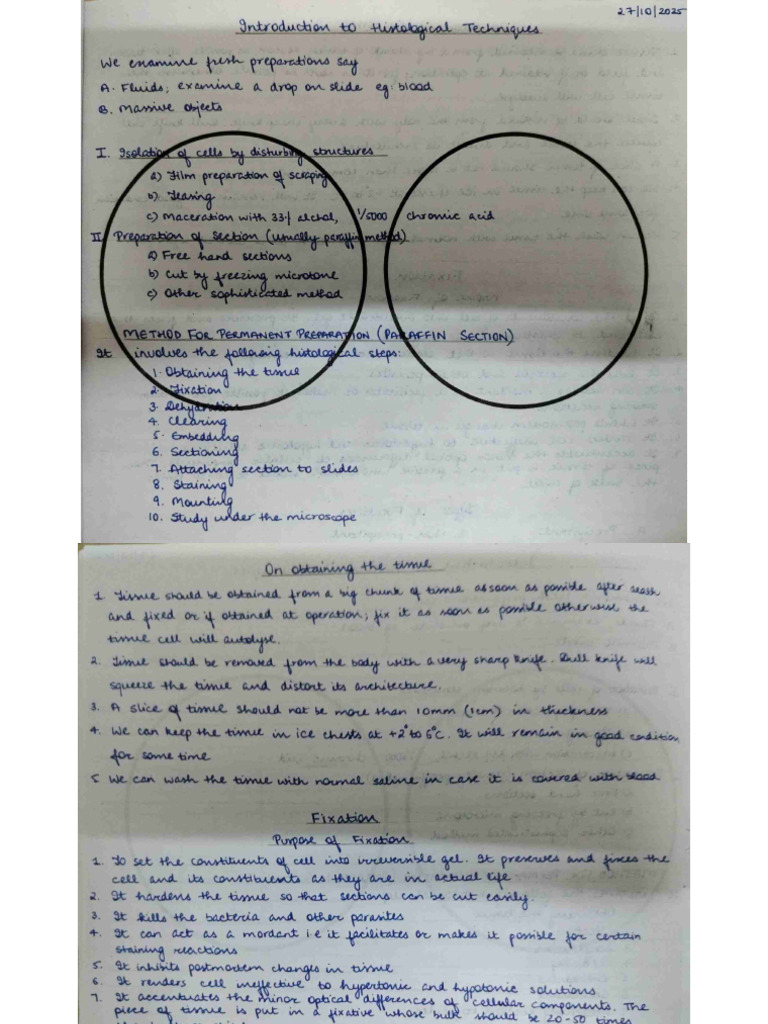 27/10/2025
Introduction to Histological Techniques
We examine fresh preparations say
A. Fluids; examine a drop on slide eg: blood
B. Massive objects
I. Isolation of cells by disturbing structures
a) Film preparation of scraping
b) Teasing
c) Maceration with 33% alchol, 1/5000 chromic acid
II. Preparation of Section (usually paraffin method)
a) Free hand sections
b) Cut by freezing microtone
c) Other sophisticated method
METHOD FOR PERMANENT PREPARATION (PARAFFIN SECTION)
It involves the following histological steps:
1. Obtaining the tissue
2. Fixation
3. Dehydration
4. Clearing
5. Embedding
6. Sectioning
7. Attaching section to slides
8. Staining
9. Mounting
10. Study under the microscope
On obtaining the tissue
1. Tissue should be obtained from a big chunk of tissue as soon as possible after death
and fixed or if obtained at operation; fix it as soon as possible otherwise the
tissue cell will autolyse.
2. Tissue should be removed from the body with a very sharp knife. Dull knife will
squeeze the tissue and distort its architecture.
3. A slice of tissue should not be more than 10mm (1cm) in thickness
4. We can keep the tissue in ice chests at +2° to 6°C. It will remain in good condition
for some time
5 We can wash the tissue with normal saline in case it is covered with blood
Fixation
Purpose of Fixation
1. To set the constituents of cell into irreversible gel. It preserves and fixes the
cell and its constituents as they are in actual life
2. It hardens the tissue so that sections can be cut easily.
3. It kills the bacteria and other parasites
4. It can act as a mordant i.e it facilitates or makes it possible for certain
staining reactions
5. It inhibits postmortem changes in tissue
6. It renders cell ineffective to hypertonic and hypotonic solutions.
7. It accentuates the minor optical differences of cellular components. The
piece of tissue is put in a fixative whose bulk should be 20-50 times